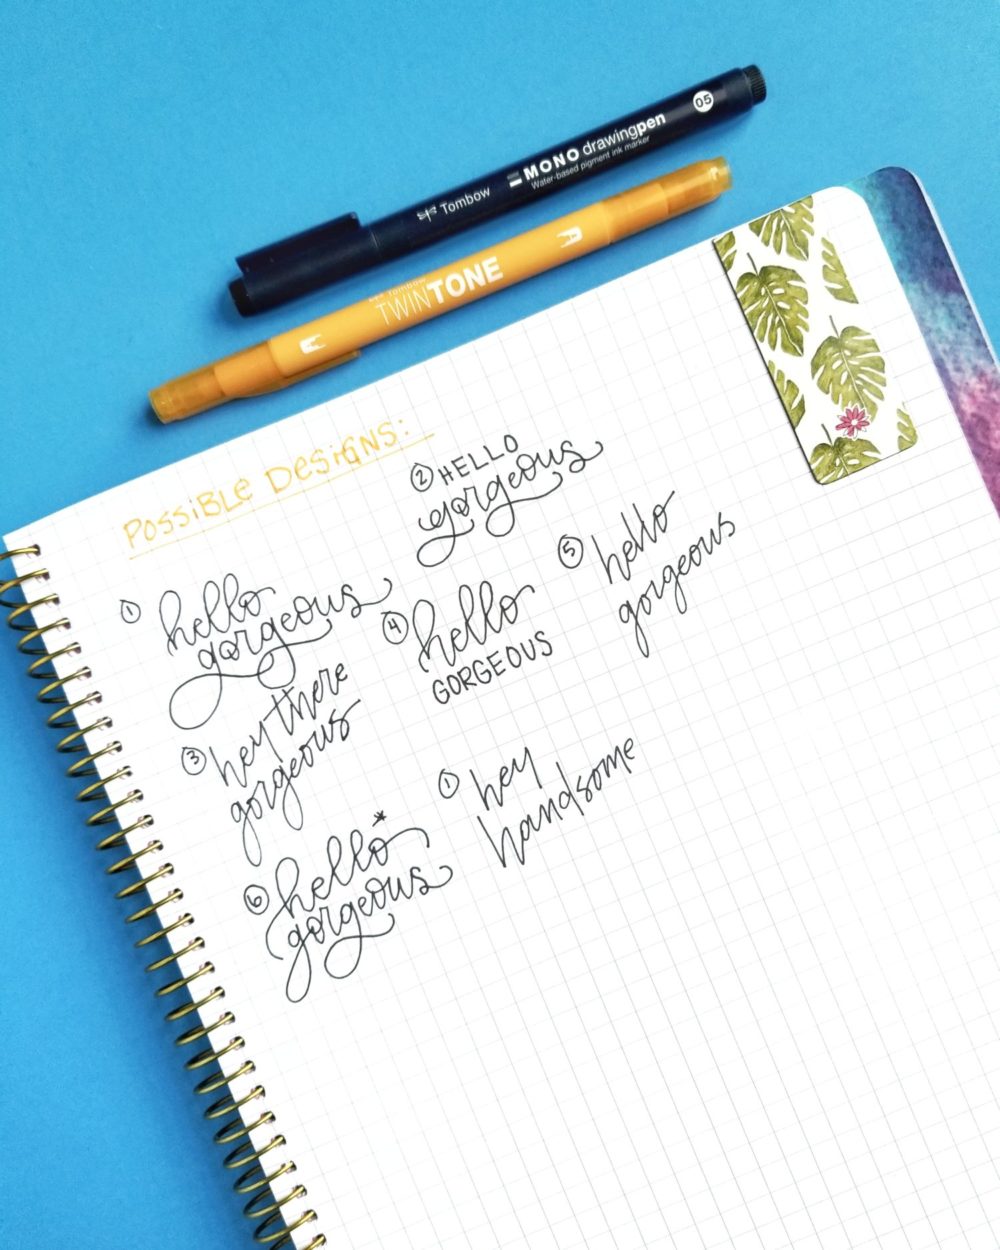 05
MONO drawingpen
Water-based pigment ink marker
Tombow
Tombow
TWINTONE
POSSIBLE DESIGNS:
① hello
gorgeous
② HELLO
gorgeous
③ hey there
gorgeous
④ hello
GORGEOUS
⑤ hello
gorgeous
⑥ hello*
gorgeous
① hey
handsome